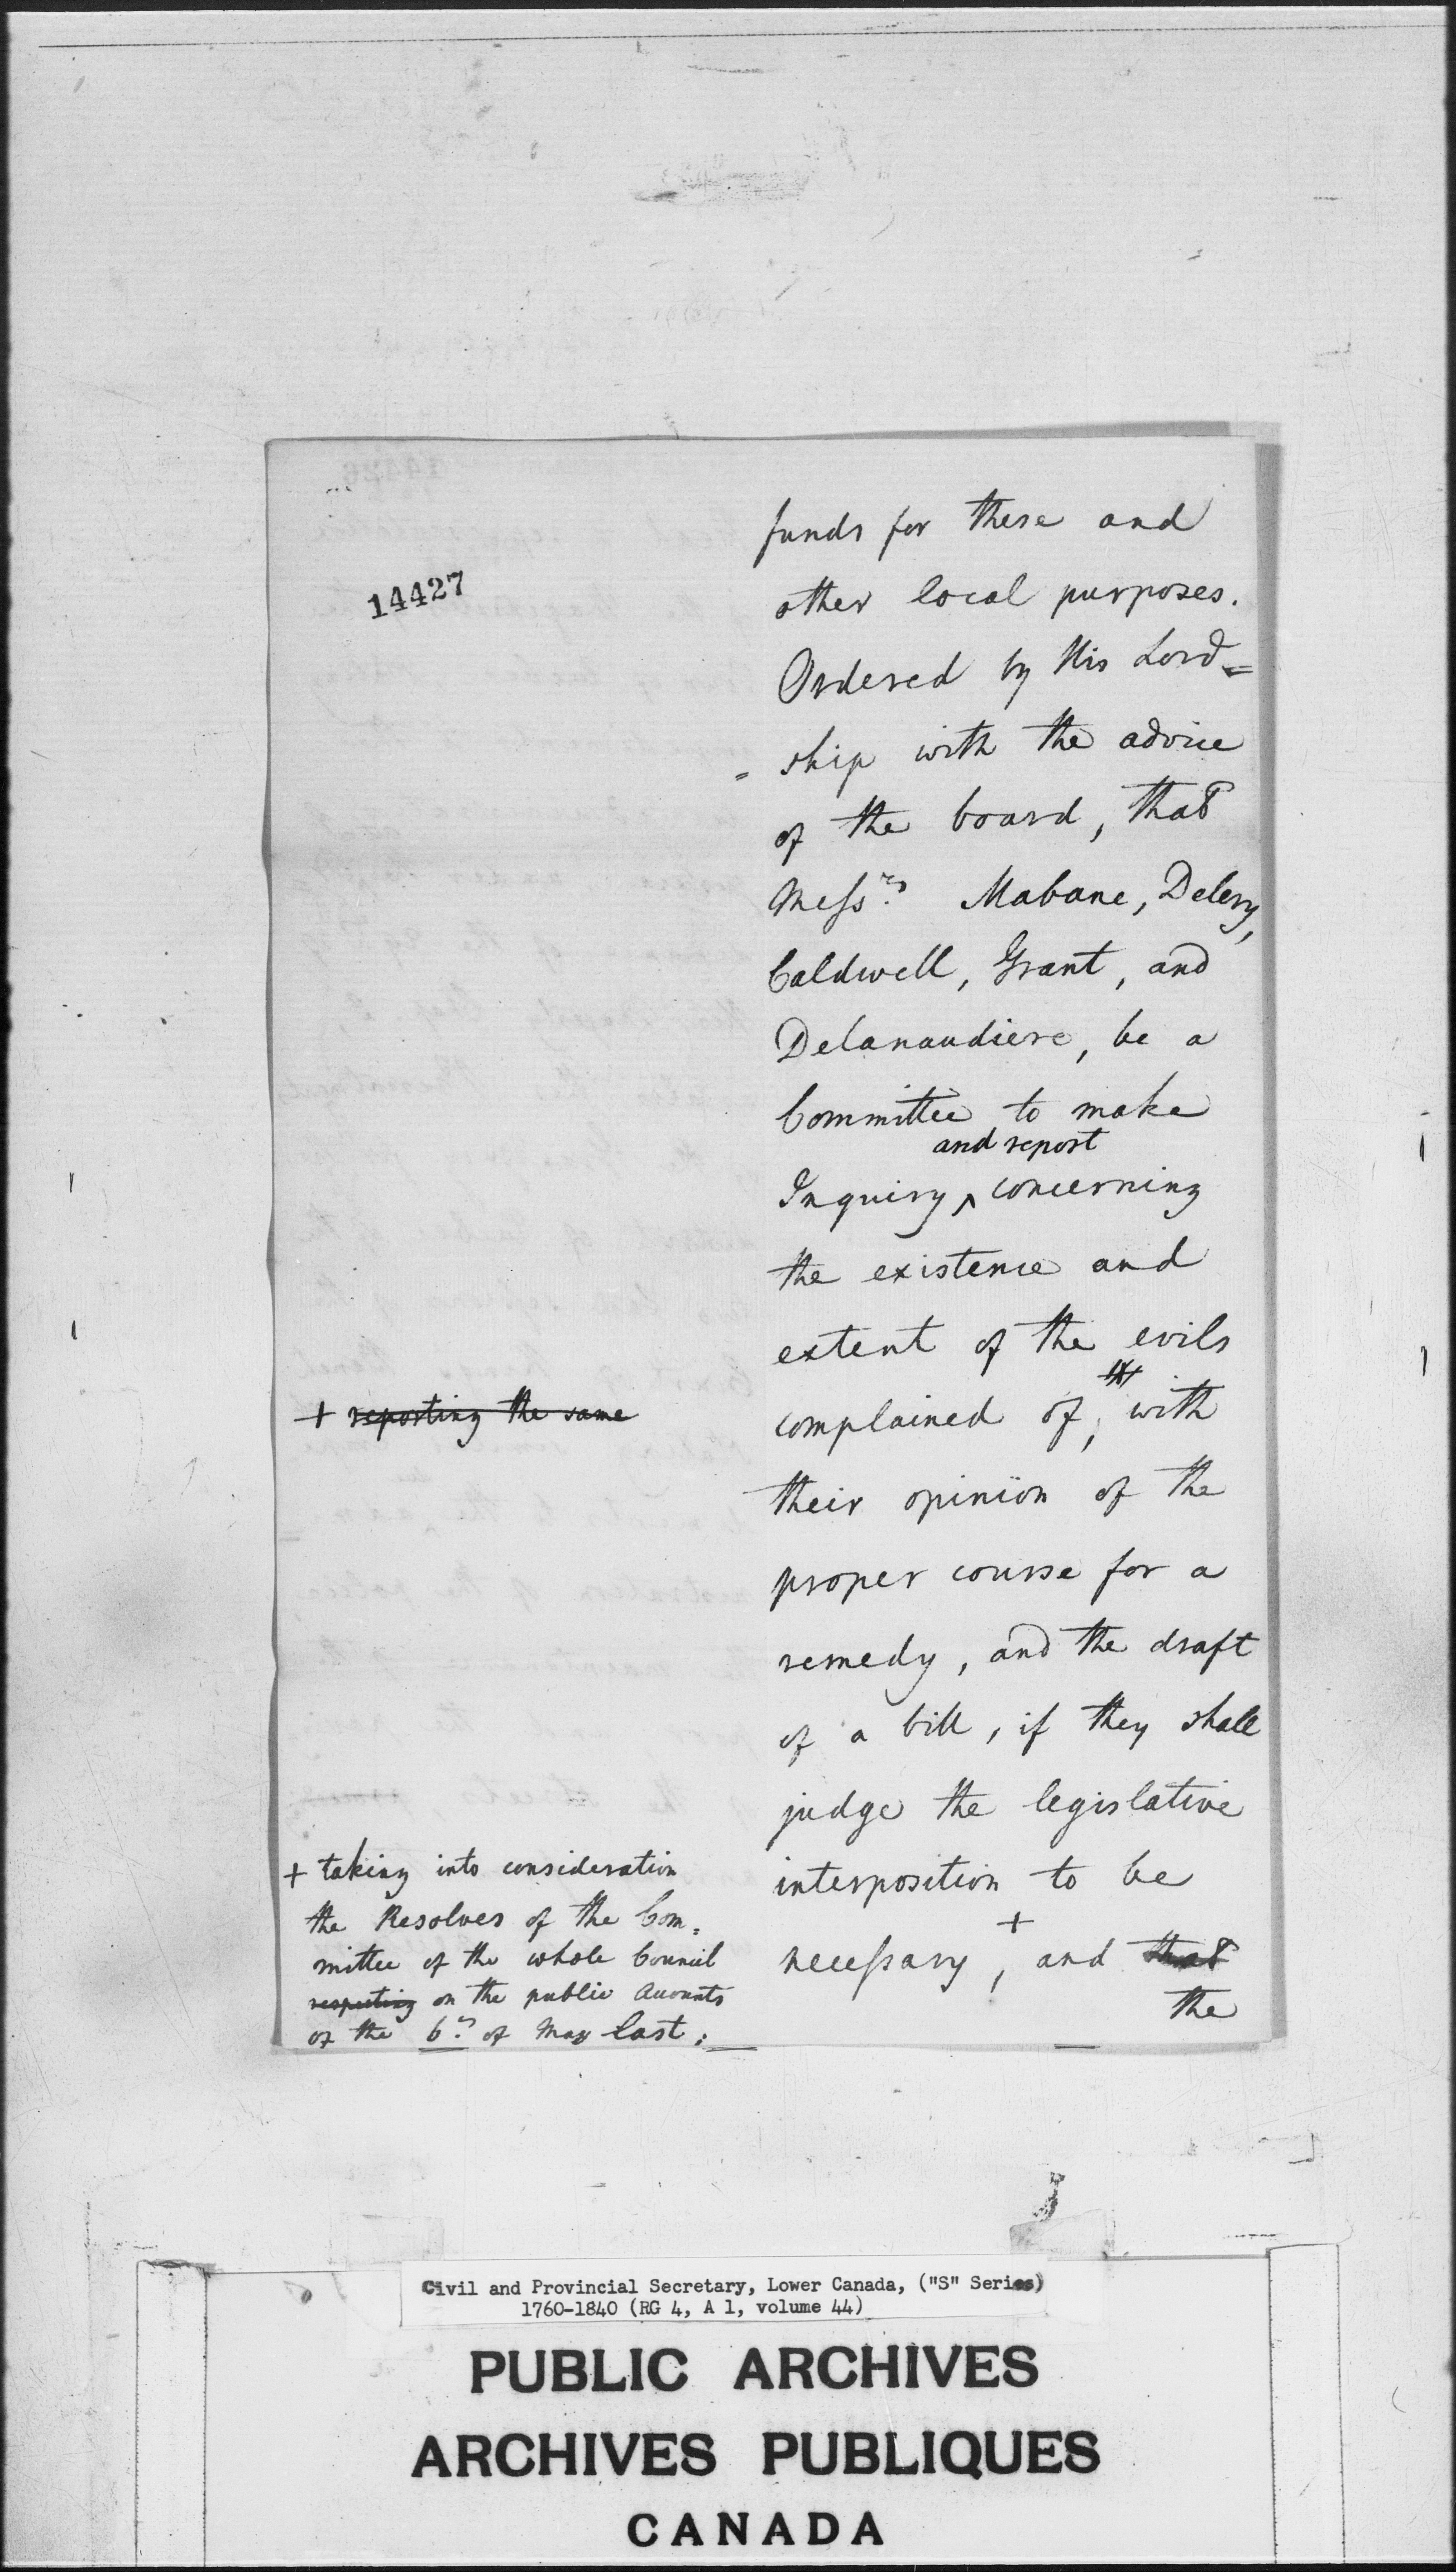 14427
funds for these and
other local purposes.
Ordered by His Lord=
=ship with the advice
of the board, that
Messrs. Mabane, Delery,
Caldwell, Grant, and
Delanaudiere, be a
Committee to make
and report
Inquiry ^ concerning
the existence and
extent of the evils
+ reporting the same
complained of, with
their opinion of the
proper course for a
remedy, and the draft
of a bill, if they shall
judge the legislative
interposition to be
+
necessary, and that
the
+ taking into consideration
the Resolves of the Com=
mittee of the whole Council
respecting on the public Accounts
of the 6th. of May last;
Civil and Provincial Secretary, Lower Canada, ("S" Series)
1760-1840 (RG 4, A 1, volume 44)
PUBLIC ARCHIVES
ARCHIVES PUBLIQUES
CANADA